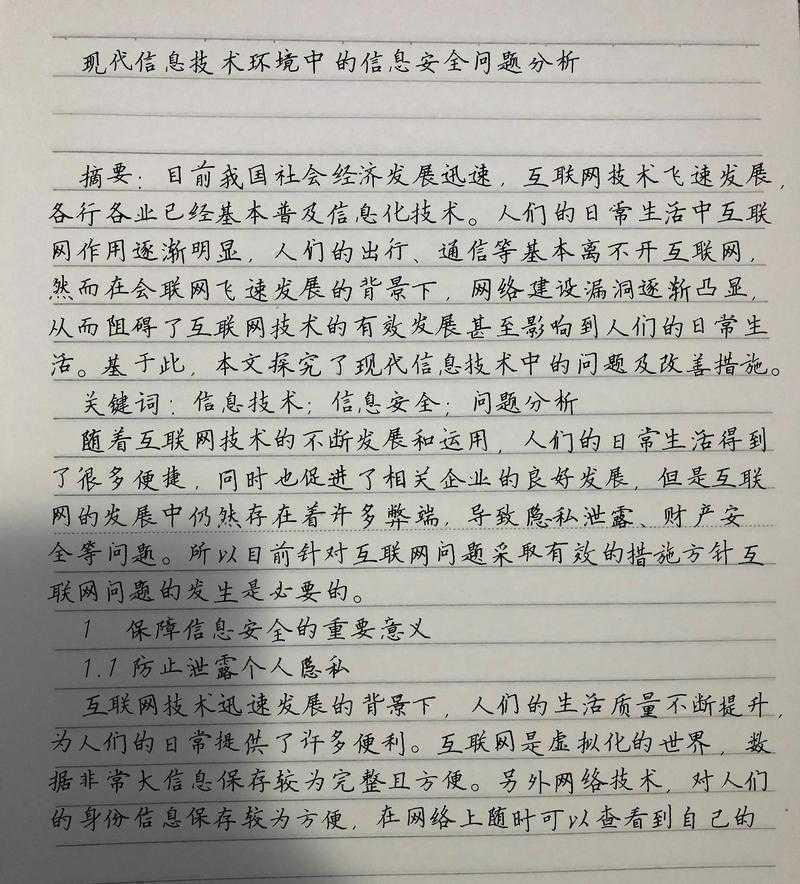 现代信息技术环境中的信息安全问题分析
摘要：目前我国社会经济发展迅速，互联网技术飞速发展，
各行各业已经基本普及信息化技术。人们的日常生活中互联
网作用逐渐明显，人们的出行、通信等基本离不开互联网，
然而在会联网飞速发展的背景下，网络建设漏洞逐渐凸显，
从而阻碍了互联网技术的有效发展甚至影响到人们的日常生
活。基于此，本文探究了现代信息技术中的问题及改善措施。
关键词：信息技术；信息安全；问题分析
随着互联网技术的不断发展和运用，人们的日常生活得到
了很多便捷，同时也促进了相关企业的良好发展，但是互联
网的发展中仍然存在着许多弊端，导致隐私泄露、财产安
全等问题。所以目前针对互联网问题采取有效的措施方针互
联网问题的发生是必要的。
1 保障信息安全的重要意义
1.1 防止泄露个人隐私
互联网技术迅速发展的背景下，人们的生活质量不断提升，
为人们的日常提供了许多便利。互联网是虚拟化的世界，数
据非常大信息保存较为完整且方便。另外网络技术，对人们
的身份信息保存较为方便，在网络上随时可以查看到自己的